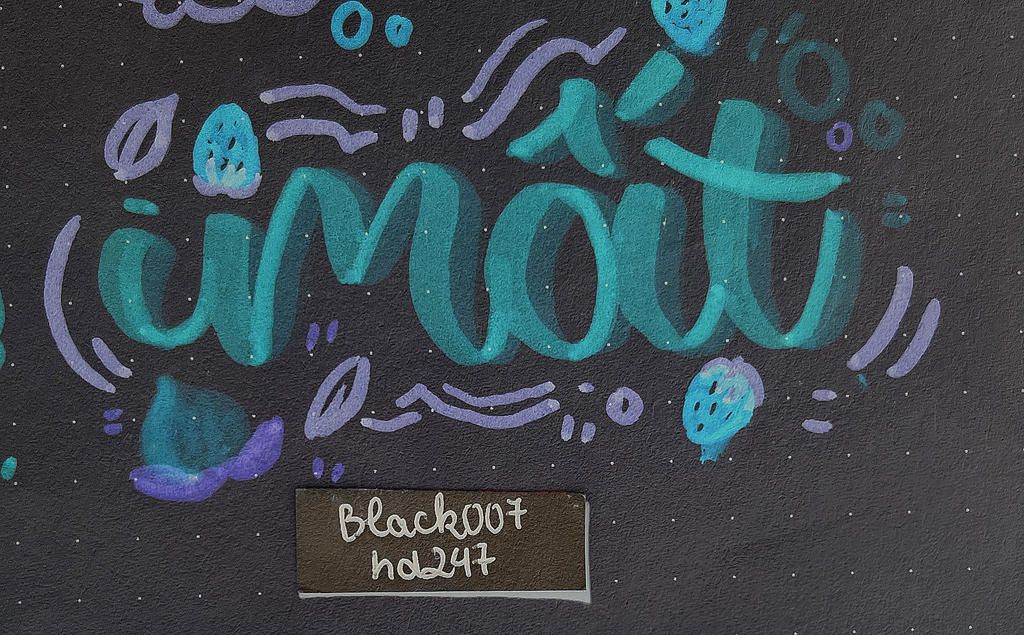 imất
Black007
hd247